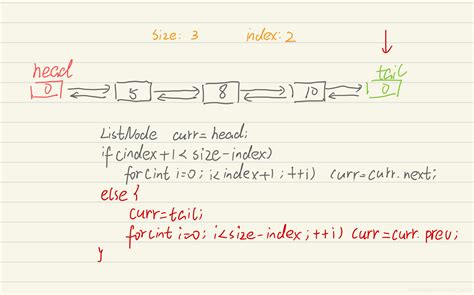 size: 3 index: 2
head tail
0 5 8 10 0
ListNode curr = head;
if (index+1 < size-index)
for (int i=0; i<index+1; ++i) curr = curr.next;
else {
curr = tail;
for (int i=0; i<size-index; ++i) curr = curr.prev;
}